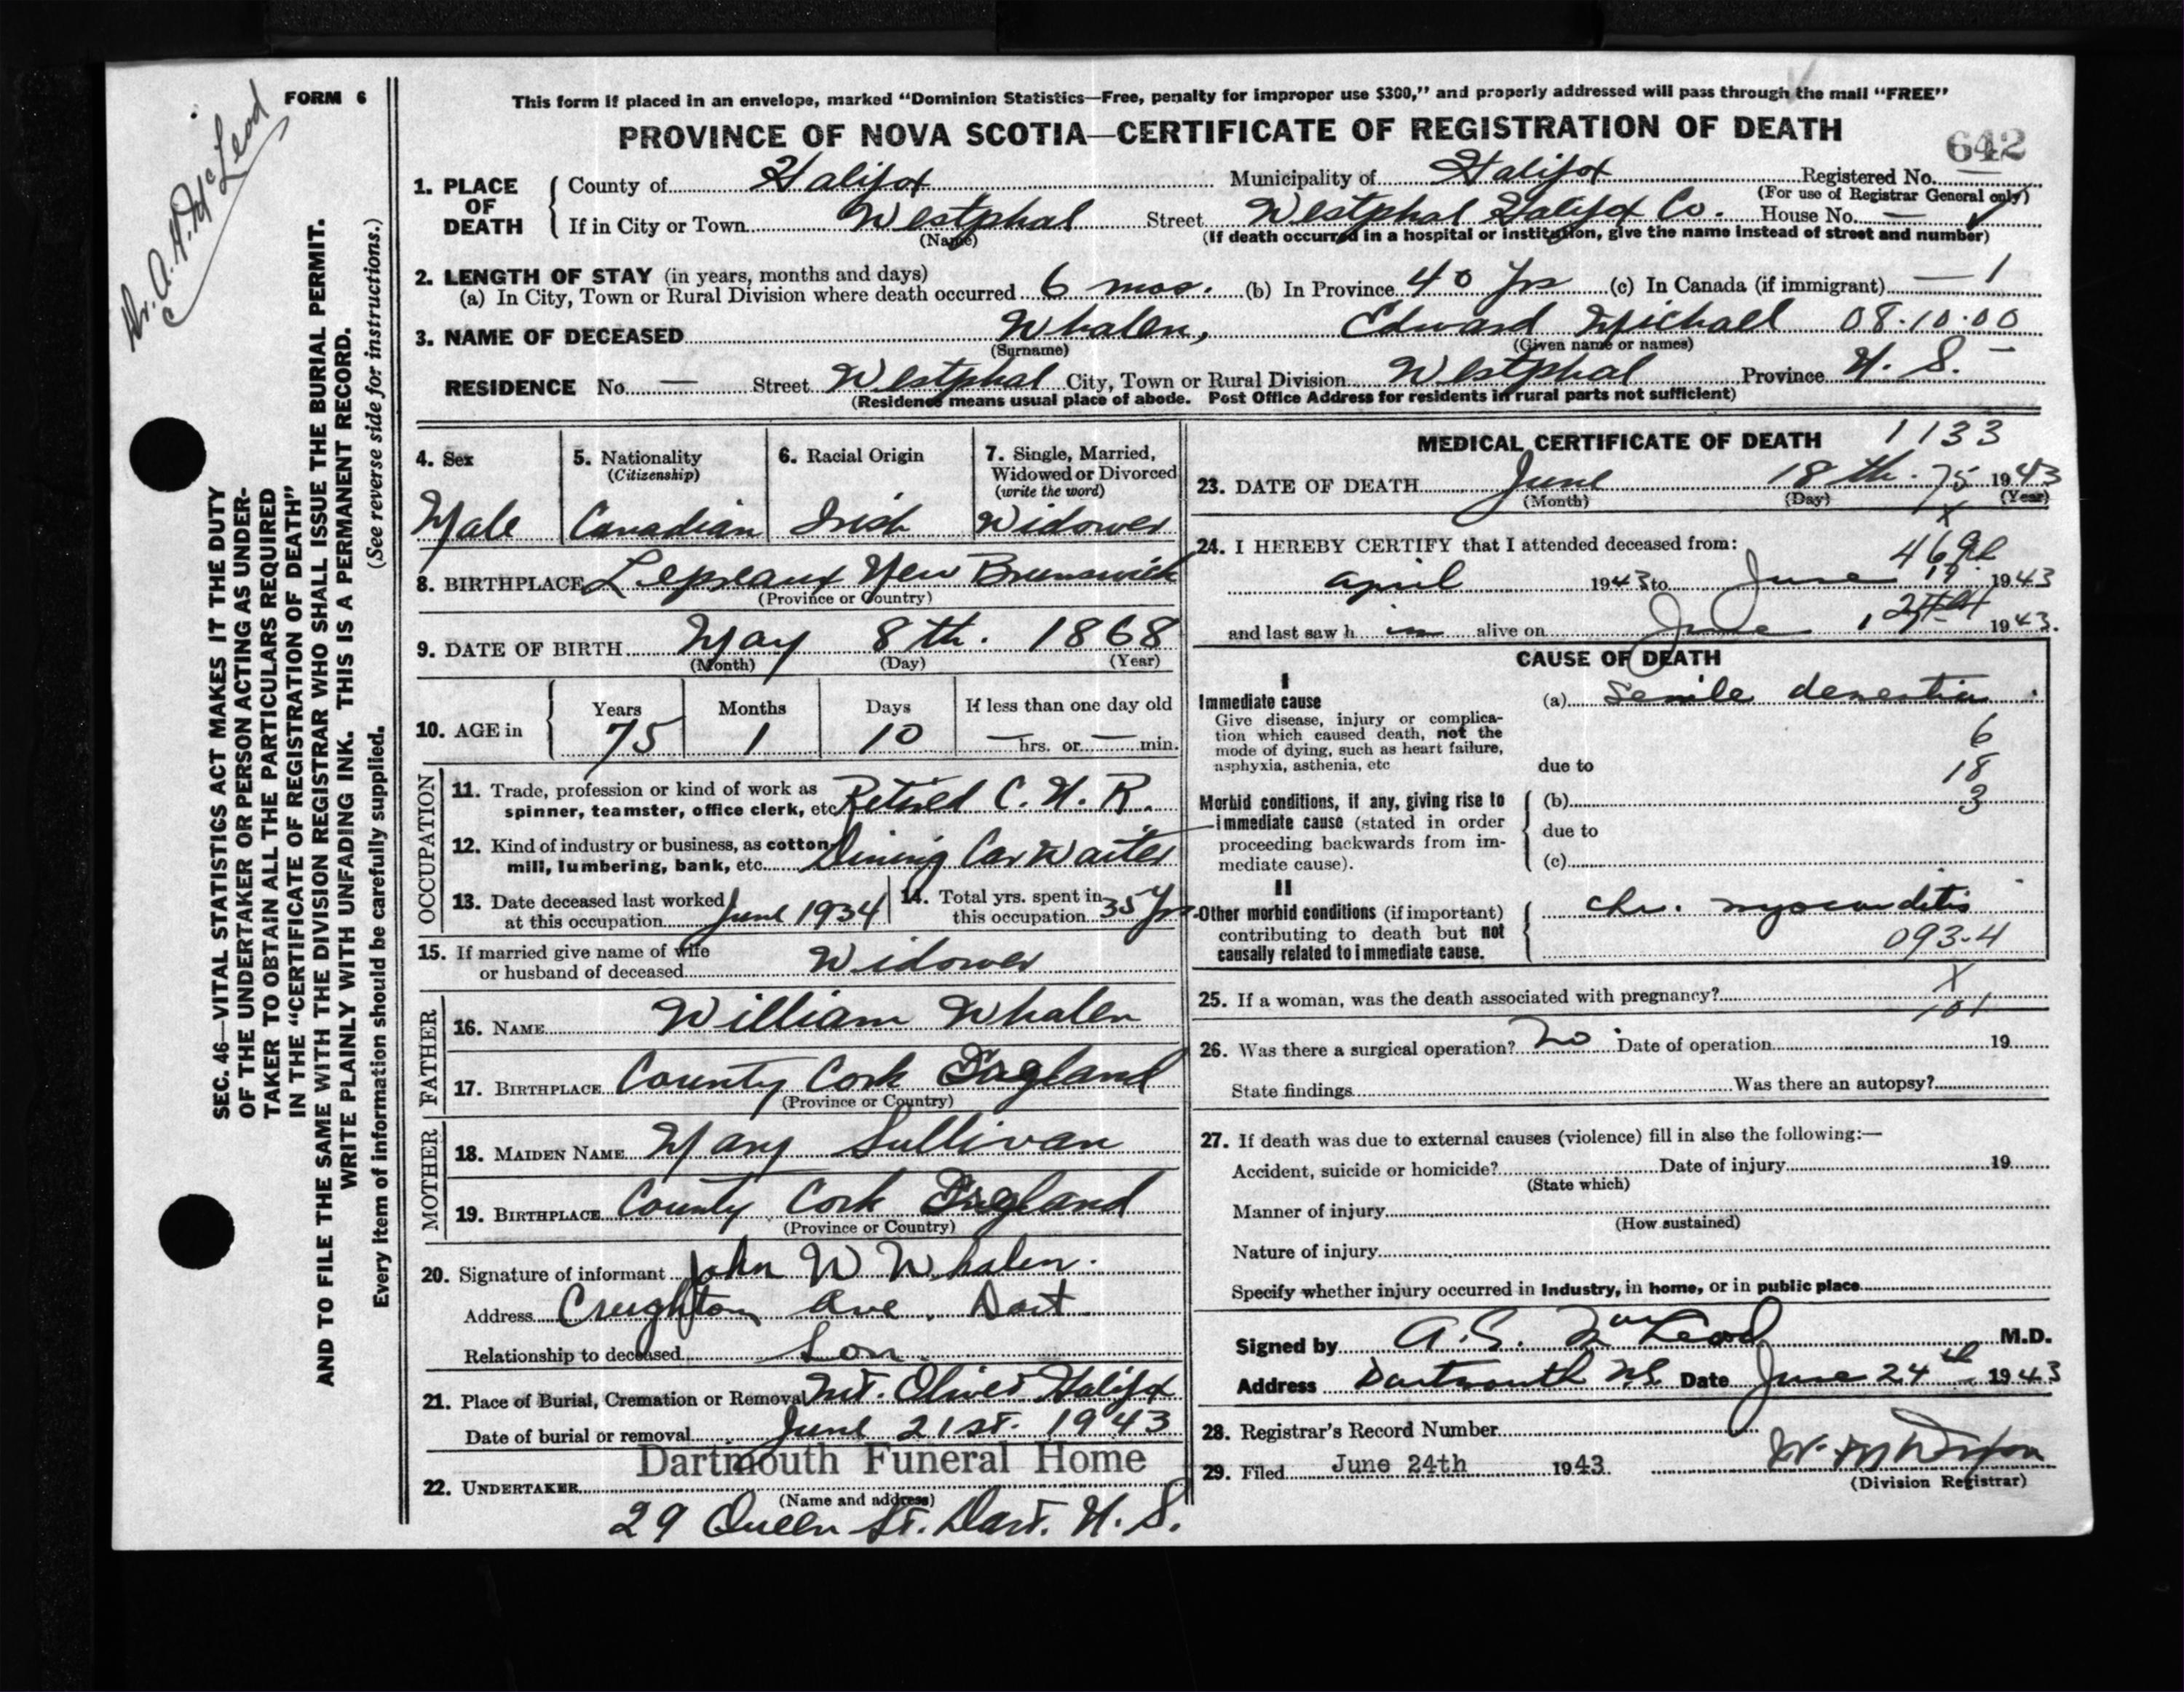 Dr. A. H. McLeod
FORM 6
SEC. 46—VITAL STATISTICS ACT MAKES IT THE DUTY
OF THE UNDERTAKER OR PERSON ACTING AS UNDER-
TAKER TO OBTAIN ALL THE PARTICULARS REQUIRED
IN THE "CERTIFICATE OF REGISTRATION OF DEATH"
AND TO FILE THE SAME WITH THE DIVISION REGISTRAR WHO SHALL ISSUE THE BURIAL PERMIT.
WRITE PLAINLY WITH UNFADING INK. THIS IS A PERMANENT RECORD.
Every item of information should be carefully supplied. (See reverse side for instructions.)
This form if placed in an envelope, marked "Dominion Statistics—Free, penalty for improper use $300," and properly addressed will pass through the mail "FREE"
PROVINCE OF NOVA SCOTIA—CERTIFICATE OF REGISTRATION OF DEATH
642
1. PLACE OF DEATH County of Halifax Municipality of Halifax Registered No.
(For use of Registrar General only)
If in City or Town Westphal Street Westphal Halifax Co. House No. —
(Name) (If death occurred in a hospital or institution, give the name instead of street and number)
2. LENGTH OF STAY (in years, months and days)
(a) In City, Town or Rural Division where death occurred 6 mos. (b) In Province 40 yrs (c) In Canada (if immigrant) — 1
3. NAME OF DECEASED Whalen, Edward Michael 08.10.00
(Surname) (Given name or names)
RESIDENCE No. — Street Westphal City, Town or Rural Division Westphal Province N. S. —
(Residence means usual place of abode. Post Office Address for residents in rural parts not sufficient)
4. Sex 5. Nationality 6. Racial Origin 7. Single, Married,
(Citizenship) Widowed or Divorced
(write the word)
Male Canadian Irish Widower
8. BIRTHPLACE Lepreaux New Brunswick
(Province or Country)
9. DATE OF BIRTH May 8th. 1868
(Month) (Day) (Year)
10. AGE in Years Months Days If less than one day old
75 1 10 — hrs. or — min.
OCCUPATION
11. Trade, profession or kind of work as
spinner, teamster, office clerk, etc. Retired C. N. R.
12. Kind of industry or business, as cotton
mill, lumbering, bank, etc. Dining Car Waiter
13. Date deceased last worked
at this occupation June 1934
14. Total yrs. spent in
this occupation 35 yrs.
15. If married give name of wife
or husband of deceased Widower
FATHER
16. NAME William Whalen
17. BIRTHPLACE County Cork England
(Province or Country)
MOTHER
18. MAIDEN NAME Mary Sullivan
19. BIRTHPLACE County Cork England
(Province or Country)
20. Signature of informant John W Whalen.
Address Creighton Ave. Dart
Relationship to deceased Son
21. Place of Burial, Cremation or Removal Mt. Olivet Halifax
Date of burial or removal June 21st. 1943
Dartmouth Funeral Home
22. UNDERTAKER
(Name and address)
29 Queen St. Dart. N. S.
MEDICAL CERTIFICATE OF DEATH 1133
23. DATE OF DEATH June 18th. 75 1943
(Month) (Day) (Year)
X
24. I HEREBY CERTIFY that I attended deceased from:
april 1943 to June 17 1943
and last saw him alive on June 1943.
CAUSE OF DEATH
I
Immediate cause (a) Senile dementia
Give disease, injury or complica-
tion which caused death, not the 6
mode of dying, such as heart failure,
asphyxia, asthenia, etc due to 18
Morbid conditions, if any, giving rise to (b) 3
immediate cause (stated in order
proceeding backwards from im- due to
mediate cause). (c)
II
Other morbid conditions (if important) chr. myocarditis
contributing to death but not
causally related to immediate cause. 093-4
X
25. If a woman, was the death associated with pregnancy?
101
26. Was there a surgical operation? No Date of operation 19
State findings Was there an autopsy?
27. If death was due to external causes (violence) fill in also the following:—
Accident, suicide or homicide? Date of injury 19
(State which)
Manner of injury
(How sustained)
Nature of injury
Specify whether injury occurred in Industry, in home, or in public place
Signed by A.S. MacLeod M.D.
Address Dartmouth N.S. Date June 24th 1943
28. Registrar's Record Number
29. Filed June 24th 1943.
(Division Registrar)